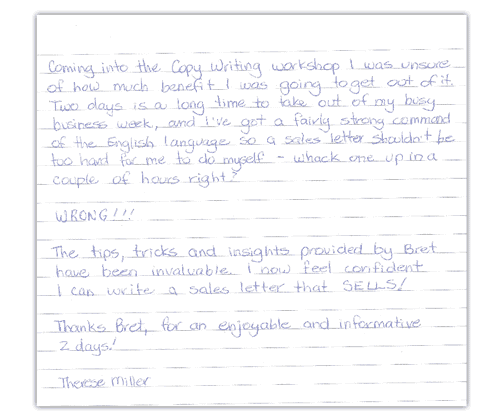 Coming into the Copy Writing workshop I was unsure
of how much benefit I was going to get out of it.
Two days is a long time to take out of my busy
business week, and i've got a fairly strong command
of the English language so a sales letter shouldn't be
too hard for me to do myself - whack one up in a
couple of hours right?
WRONG!!!
The tips, tricks and insights provided by Bret
have been invaluable. I now feel confident
I can write a sales letter that SELLS!
Thanks Bret, for an enjoyable and informative
2 days!
Therese Miller